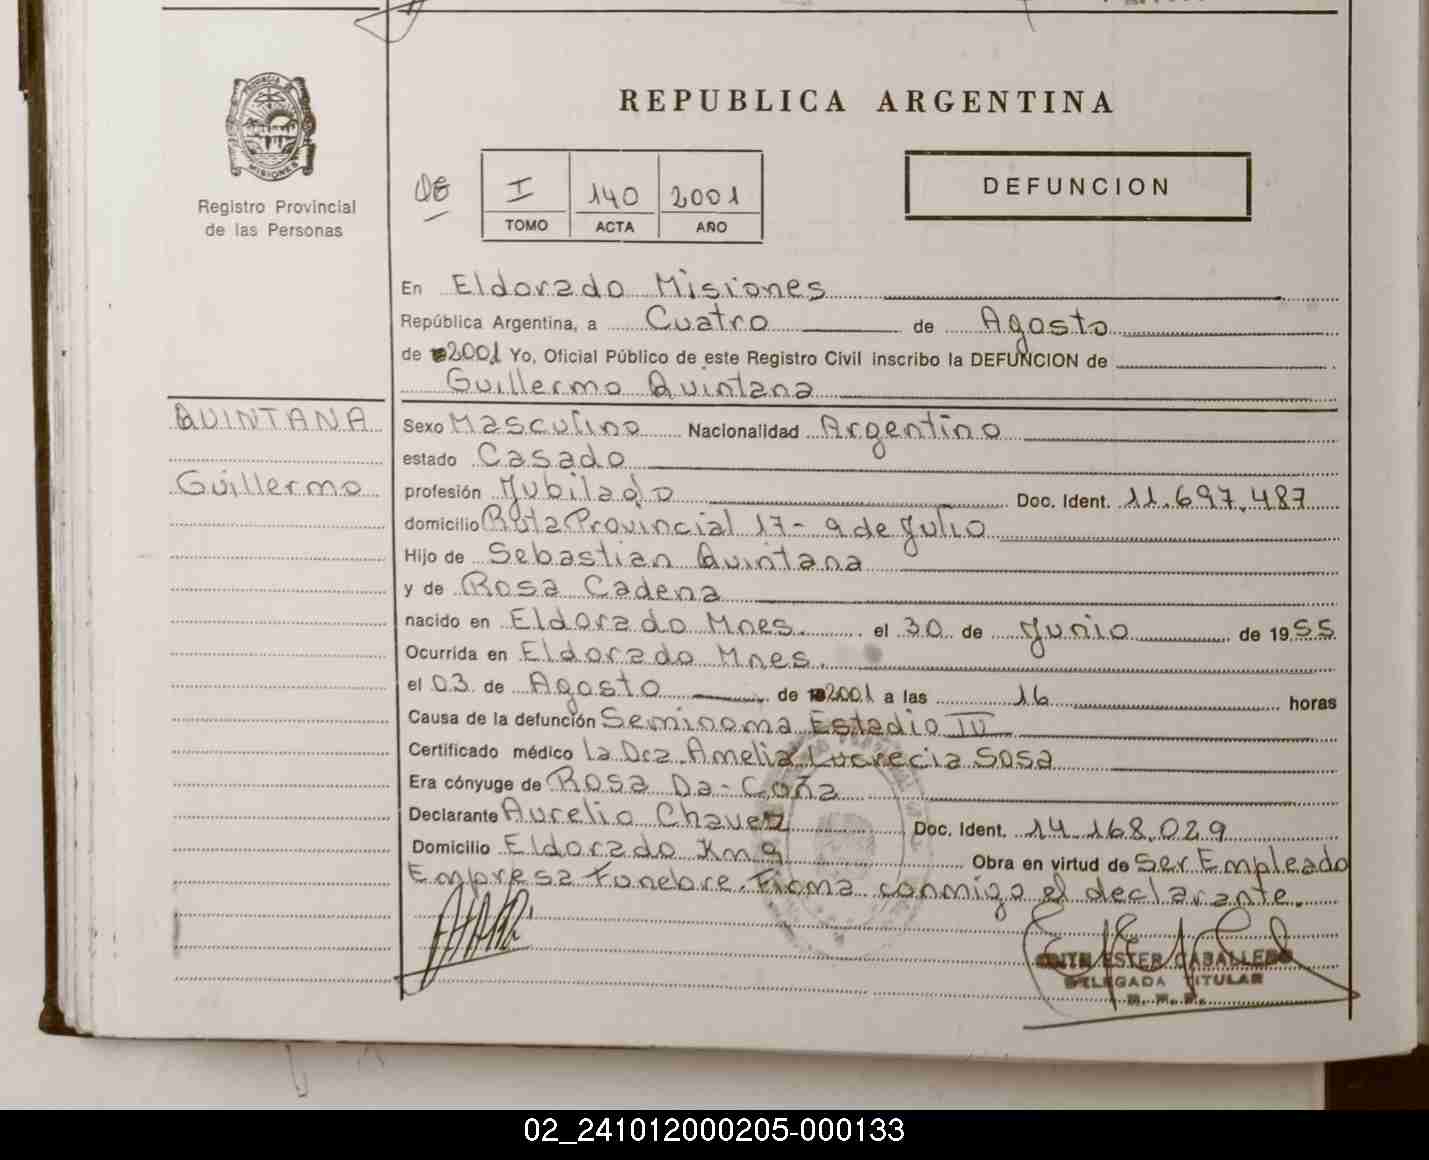 PROVINCIA DE
MISIONES
Registro Provincial
de las Personas
REPUBLICA ARGENTINA
DE
I 140 2001
TOMO ACTA AÑO
DEFUNCION
En Eldorado Misiones
República Argentina, a Cuatro de Agosto
de 2001 Yo, Oficial Público de este Registro Civil inscribo la DEFUNCION de
Guillermo Quintana
QUINTANA
Guillermo
Sexo Masculino Nacionalidad Argentino
estado Casado
profesión Jubilado Doc. Ident. 11.697.487
domicilio Ruta Provincial 17- 9 de Julio
Hijo de Sebastian Quintana
y de Rosa Cadena
nacido en Eldorado Mnes. el 30 de Junio de 1955
Ocurrida en Eldorado Mnes.
el 03 de Agosto de 2001 a las 16 horas
Causa de la defunción Seminoma Estadio IV
Certificado médico la Dra. Amelia Lucrecia Sosa
Era cónyuge de Rosa Da-Coña
Declarante Aurelio Chavez Doc. Ident. 14.168.029
Domicilio Eldorado Km 9 Obra en virtud de Ser Empleado
Empresa Funebre. Firma conmigo el declarante.
ESTER CABALLERO
DELEGADA TITULAR
02_241012000205-000133